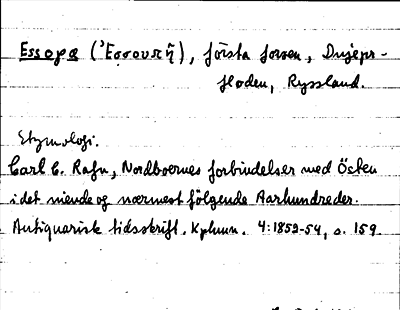 Essopa (Ἐσσουπῆ), första forsen, Dnjepr-
floden, Ryssland.
Etymologi.
Carl C. Rafn, Nordboernes forbindelser med Östen
i det niende og nærmest fölgende Aarhundreder.
Antiquarisk tidsskrift. Kphmn. 4:1852-54, s. 159.